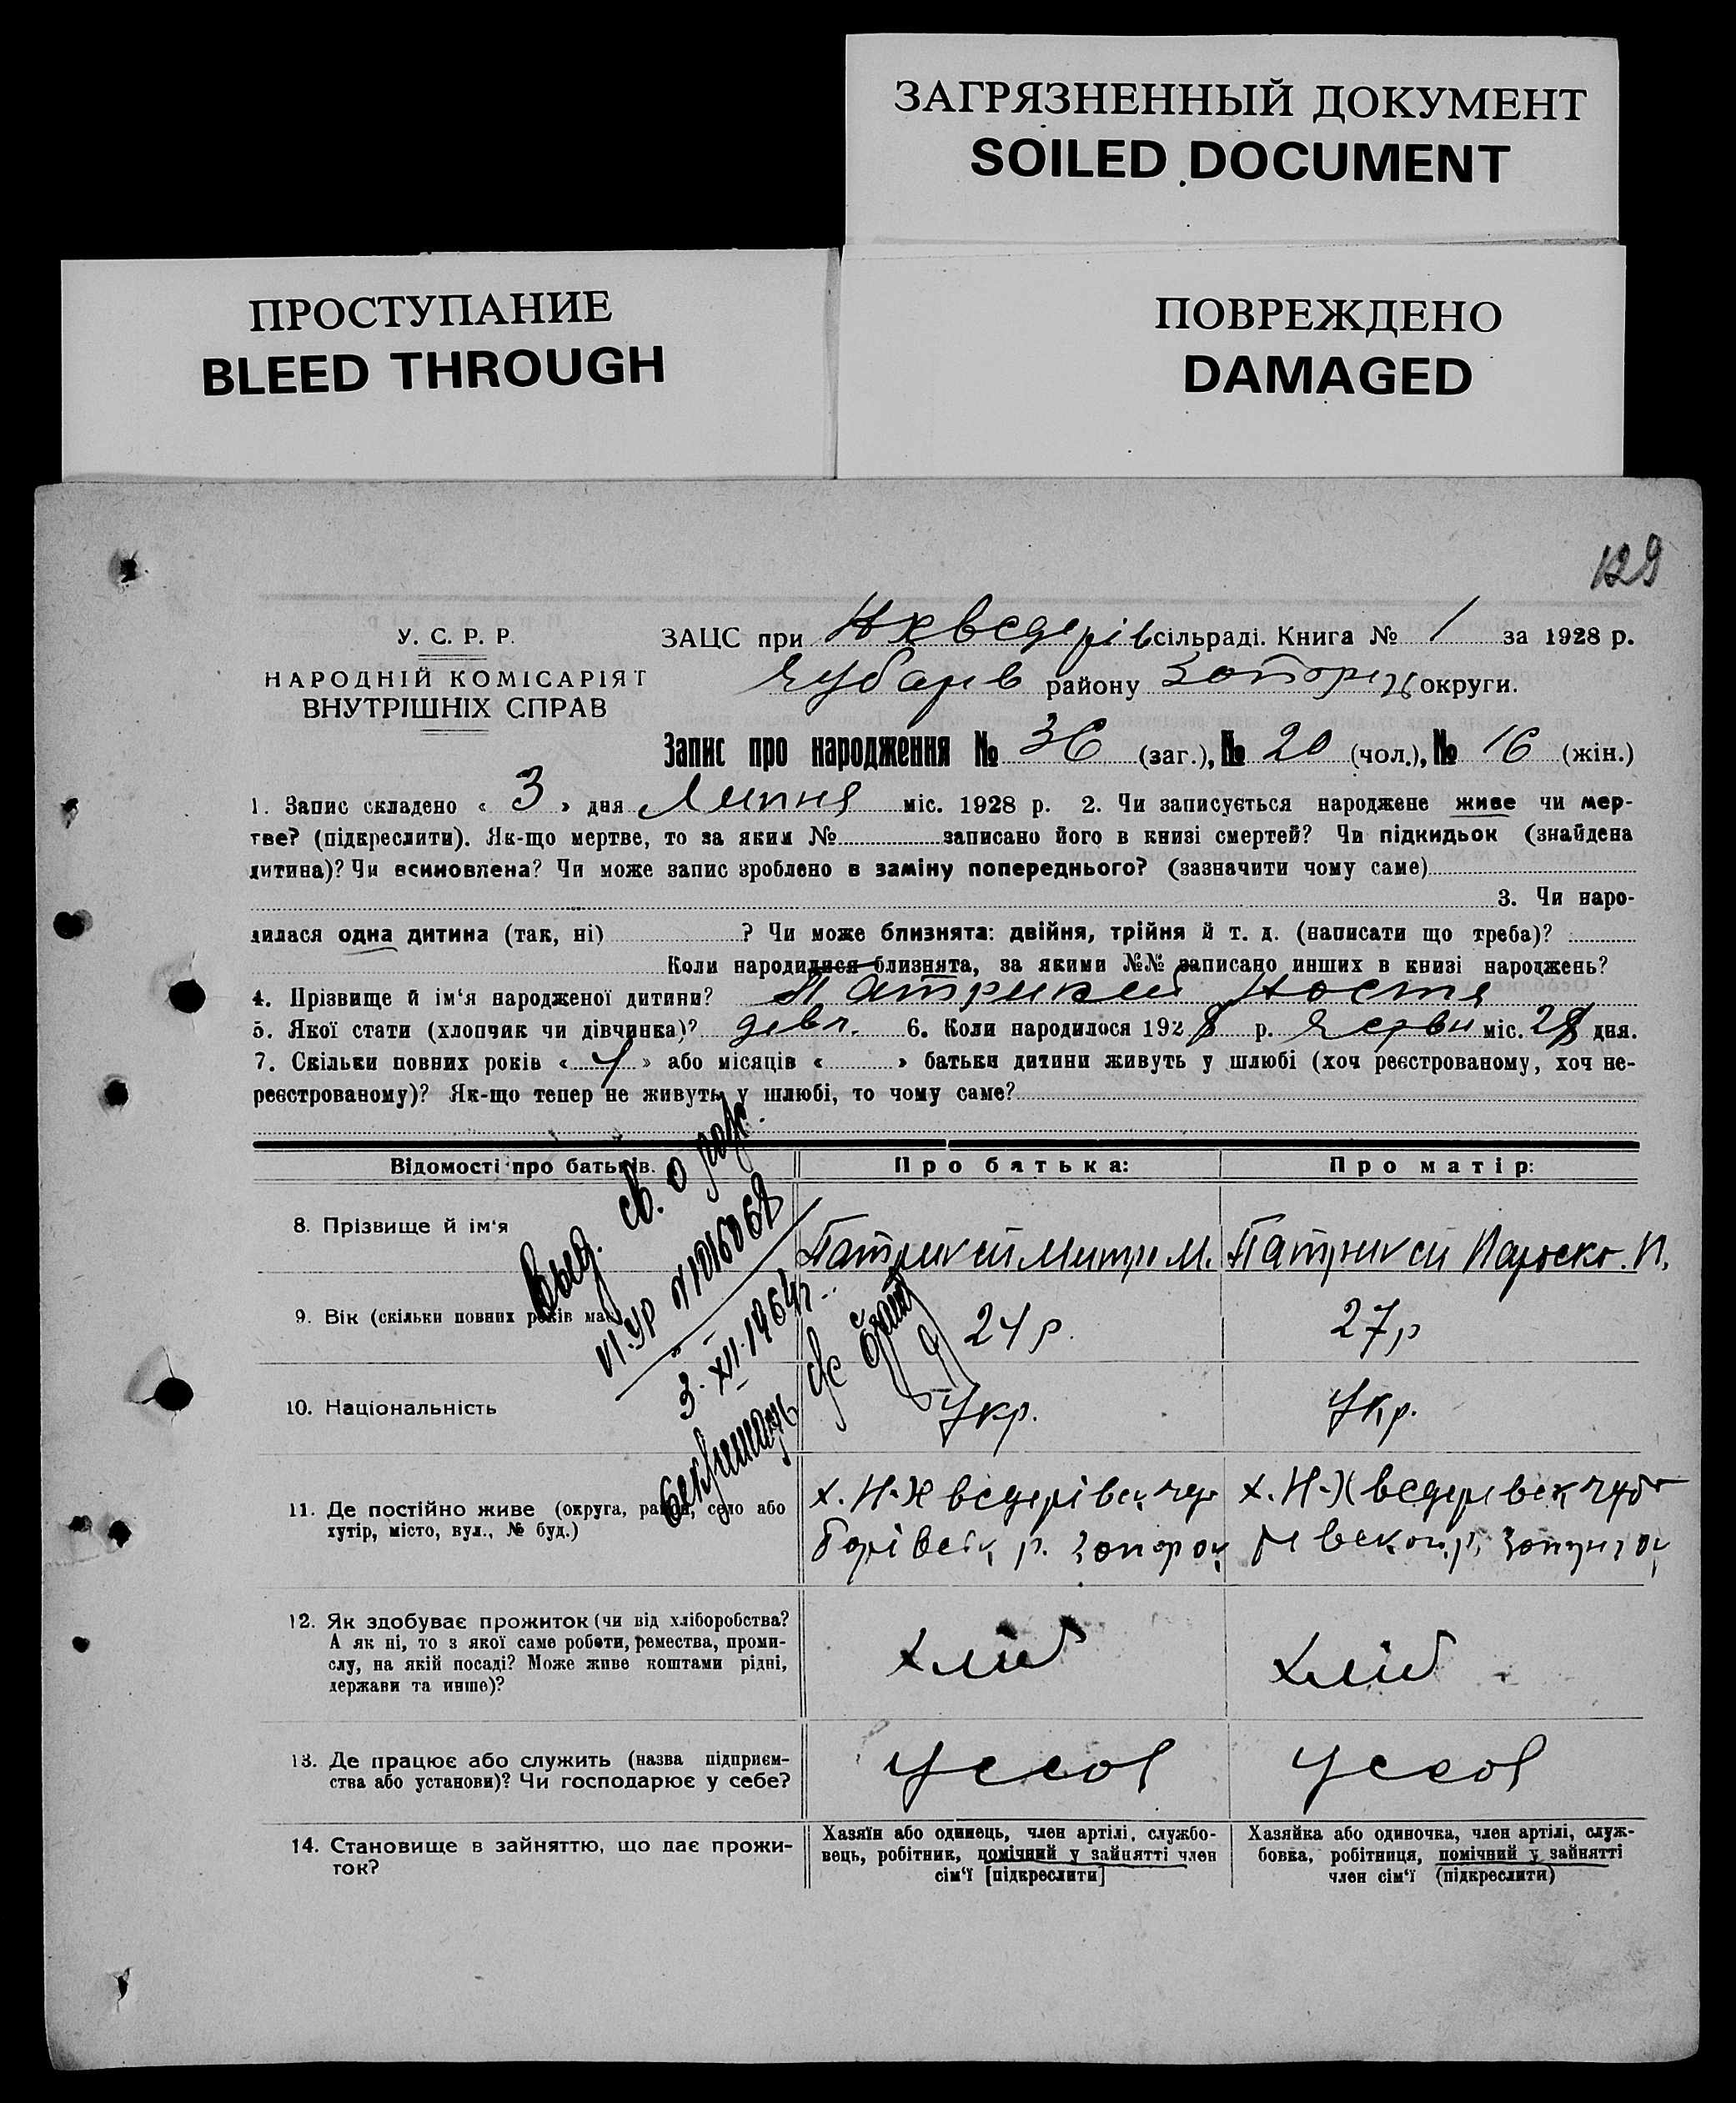 ЗАГРЯЗНЕННЫЙ ДОКУМЕНТ
SOILED DOCUMENT
ПРОСТУПАНИЕ
BLEED THROUGH
ПОВРЕЖДЕНО
DAMAGED
129
У. С. Р. Р.
НАРОДНІЙ КОМІСАРІЯТ
ВНУТРІШНІХ СПРАВ
ЗАЦС при Нхведерів сільраді. Книга № 1 за 1928 р.
Чубарів району Запоріж округи.
Запис про народження № 36 (заг.), № 20 (чол.), № 16 (жін.)
1. Запис складено « 3 » дня Липня міс. 1928 р. 2. Чи записується народжене живе чи мер-
тве? (підкреслити). Як-що мертве, то за яким № записано його в книзі смертей? Чи підкидьок (знайдена
дитина)? Чи всиновлена? Чи може запис зроблено в заміну попереднього? (зазначити чому саме)
3. Чи наро-
дилася одна дитина (так, ні) ? Чи може близнята: двійня, трійня й т. д. (написати що треба)?
Коли народилися близнята, за якими №№ записано инших в книзі народжень?
4. Прізвище й ім‘я народженої дитини? Патрикей Настя
5. Якої стати (хлопчик чи дівчинка)? девч. 6. Коли народилося 1928 р. Червн міс. 28 дня.
7. Скільки повних років « 4 » або місяців « » батьки дитини живуть у шлюбі (хоч реєстрованому, хоч не-
реєстрованому)? Як-що тепер не живуть у шлюбі, то чому саме?
Відомості про батьків.
Про батька:
Про матір:
Выд. св. о рожд.
3.XII.1964г.
Секретарь
8. Прізвище й ім‘я
Патрикей Митро М.
Патрикей Параско. П.
9. Вік (скільки повних років має)
24 р.
27 р
10. Національність
Укр.
Укр.
11. Де постійно живе (округа, район, село або
хутір, місто, вул., № буд.)
х. Н-Хведерівск Чу
барівськ р. Запор ок
х. Н-Хведеревск Чуба
12. Як здобуває прожиток (чи від хліборобства?
А як ні, то з якої саме роботи, ремества, проми-
слу, на якій посаді? Може живе коштами рідні,
держави та инше)?
хліб
хліб
13. Де працює або служить (назва підприєм-
ства або установи)? Чи господарює у себе?
У себя
У себя
14. Становище в зайняттю, що дає прожи-
ток?
Хазяїн або одинець, член артілі, службо-
вець, робітник, помічний у зайнятті член
сім‘ї [підкреслити]
Хазяйка або одиночка, член артілі, служ-
бовка, робітниця, помічний у зайнятті
член сім‘ї (підкреслити)